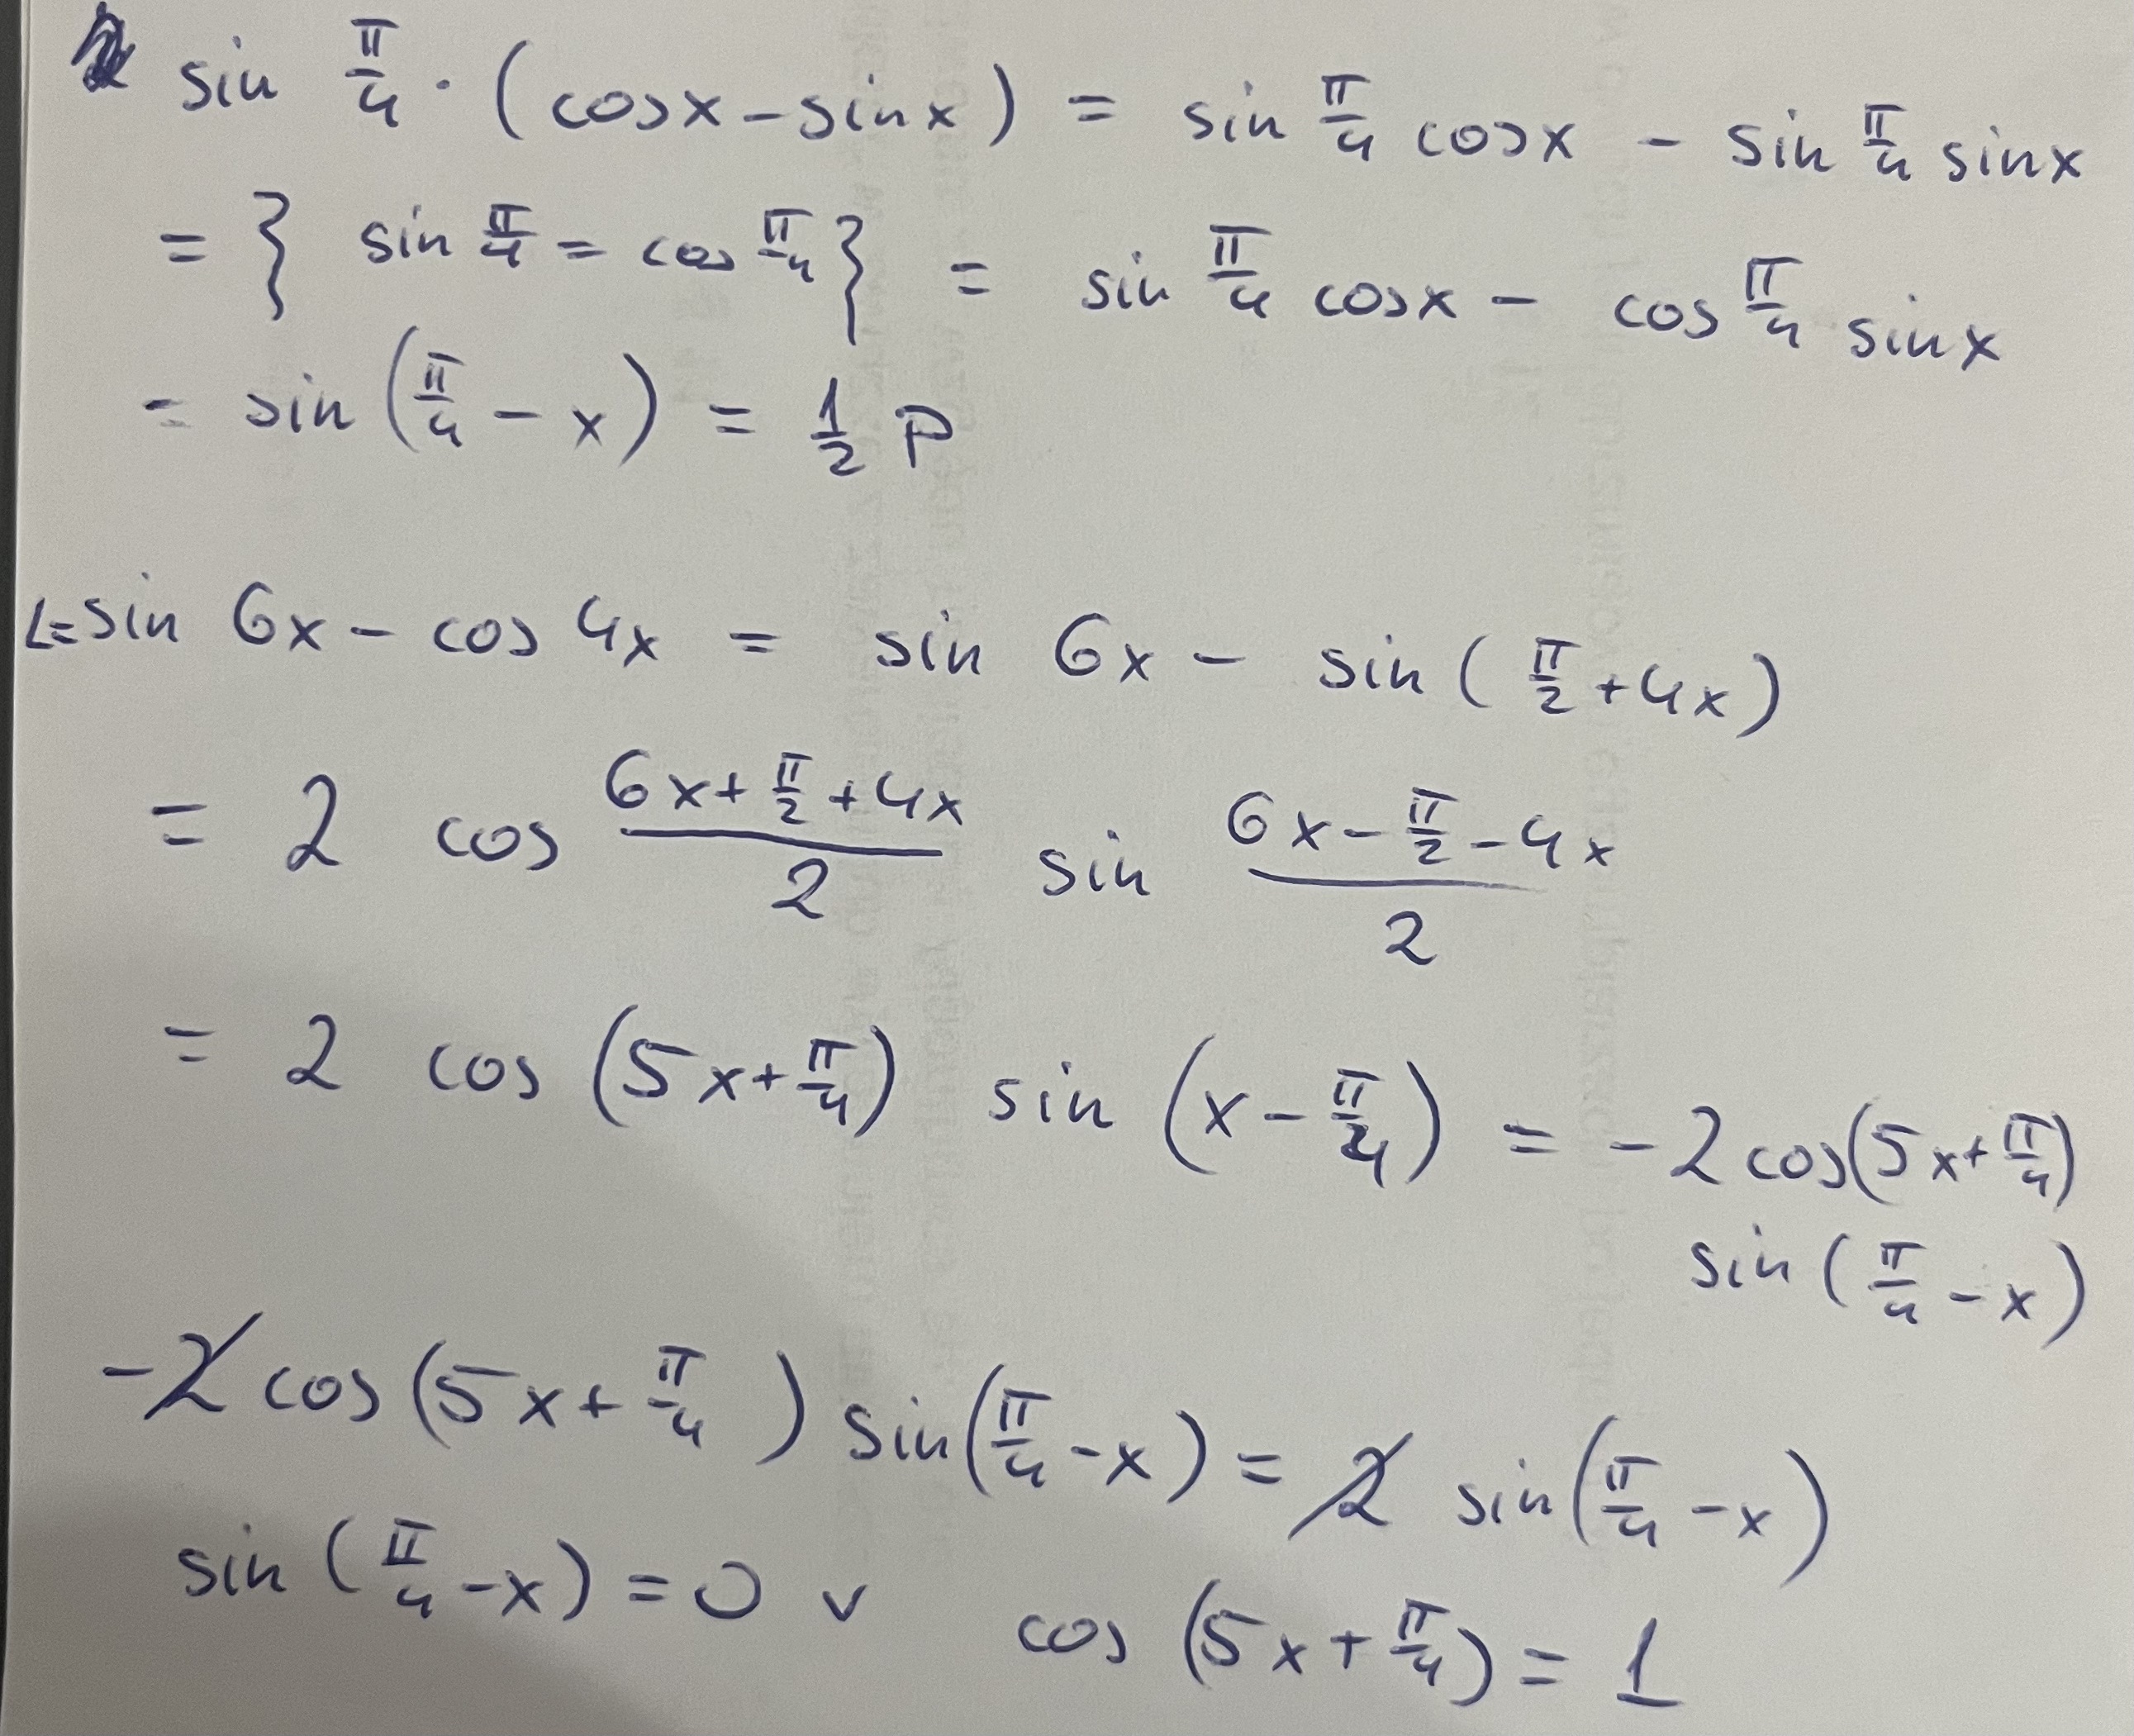 sin π/4 · (cosx - sinx) = sin π/4 cosx - sin π/4 sinx
= { sin π/4 = cos π/4 } = sin π/4 cosx - cos π/4 sinx
= sin (π/4 - x) = 1/2 P
L= sin 6x - cos 4x = sin 6x - sin (π/2 + 4x)
= 2 cos (6x + π/2 + 4x)/2 sin (6x - π/2 - 4x)/2
= 2 cos (5x + π/4) sin (x - π/4) = -2 cos(5x + π/4)
sin (π/4 - x)
-2 cos(5x + π/4) sin(π/4 - x) = 2 sin(π/4 - x)
sin (π/4 - x) = 0 v cos (5x + π/4) = 1